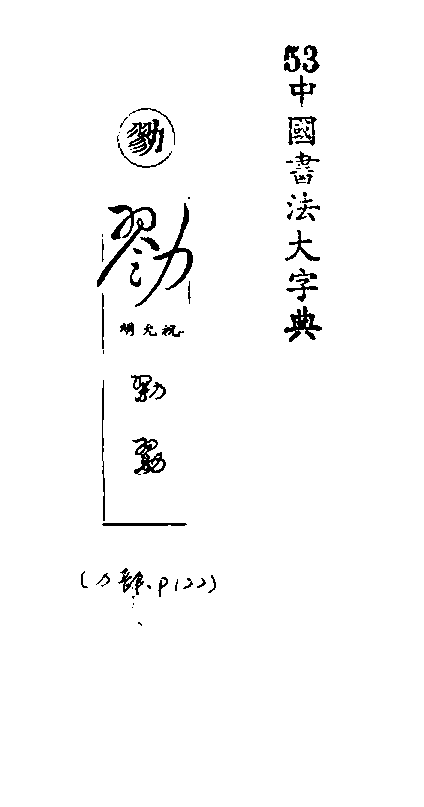 53中國書法大字典
勠
勠
祝允明
(力部.P122)